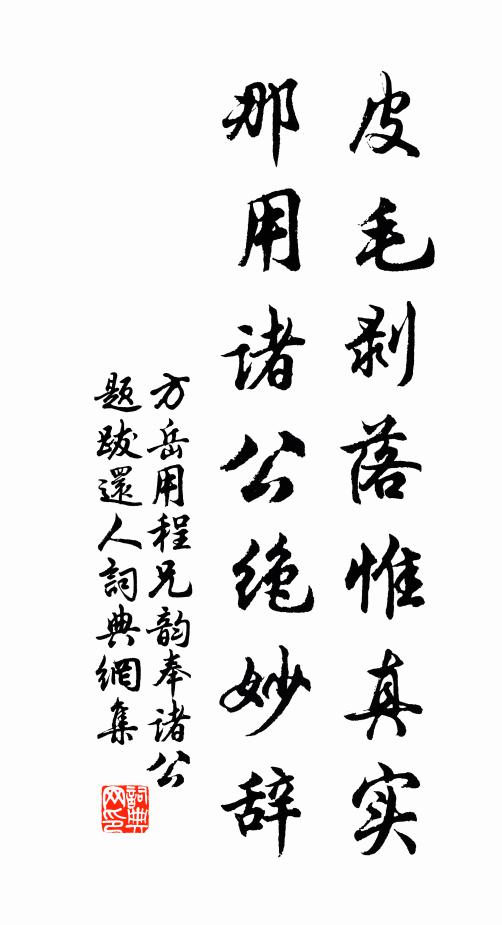 皮毛剥落惟真实
那用诸公绝妙辞
方岳用程兄韵奉诸公
题跋還人詞典網集
詞典
网印